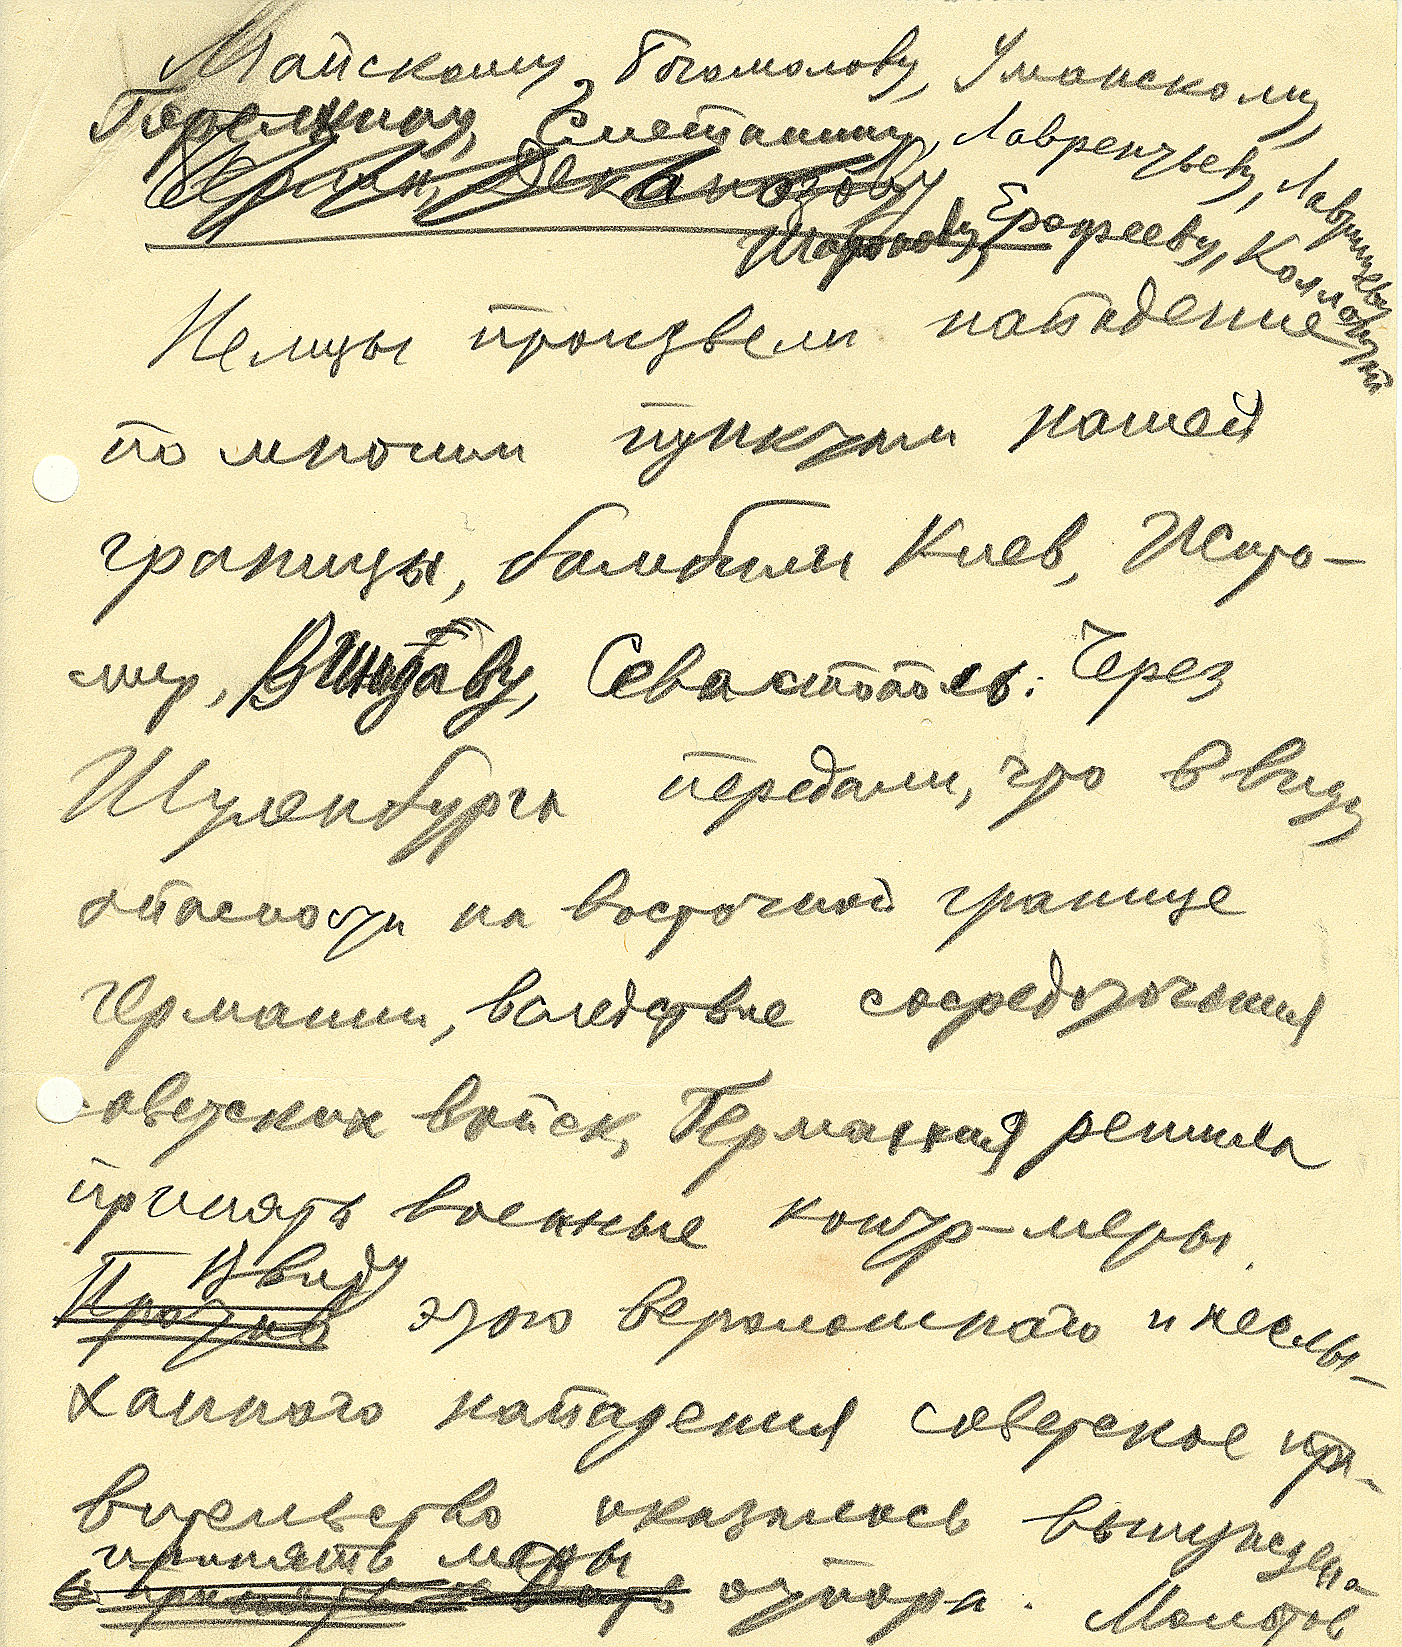 Майскому, Богомолову, Уманскому,
Горелкину, Сметанину, Лаврентьеву, Лаврищеву
Берлин, Деканозову
Шаронову, Ерофееву, Коллонтай
Немцы произвели нападение
по многим пунктам нашей
границы, бомбили Киев, Жито-
мир, Виндаву, Севастополь. Через
Шуленбурга передали, что в виду
опасности на восточной границе
Германии, вследствие сосредоточения
советских войск, Германия решила
принять военные контр-меры.
В виду
Против этого вероломного и неслы-
ханного нападения советское пра-
вительство оказалось вынуждено
принять меры
отпора. Молотов